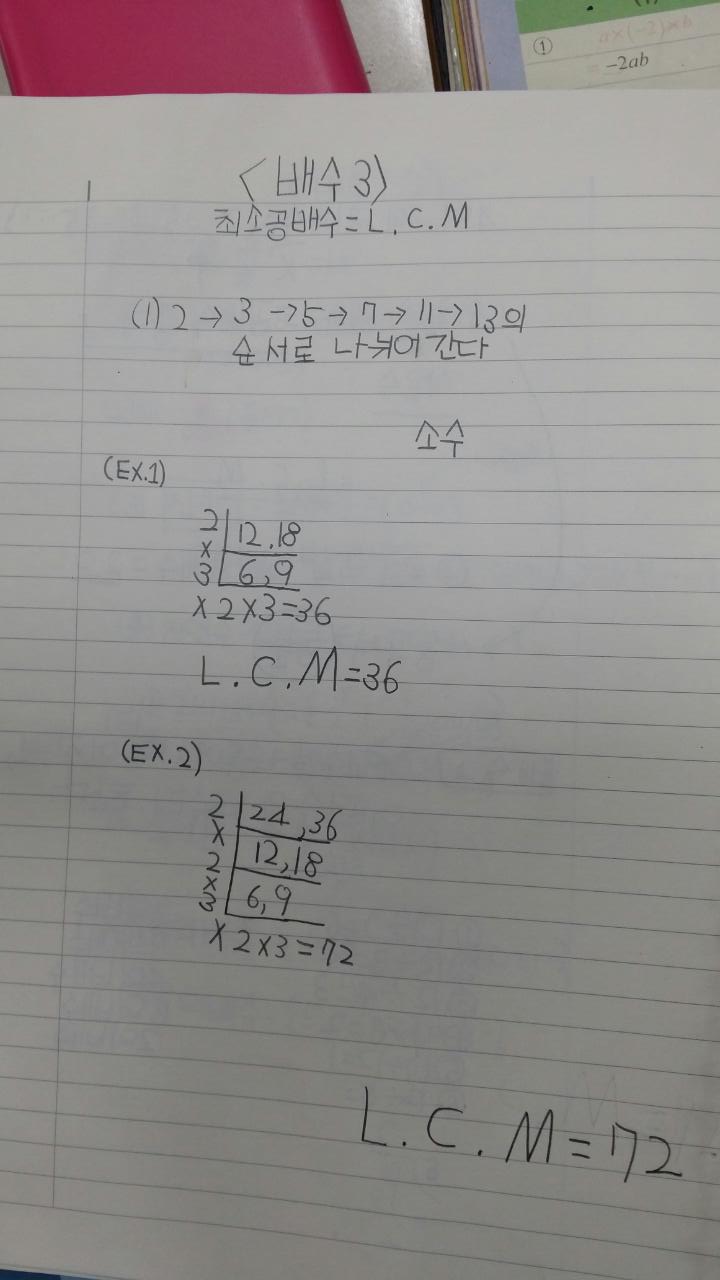 ①
ax(-2)xb
-2ab
<배수3>
최소공배수=L.C.M
(1)2→3→5→7→11→13의
순서로 나눠어간다
소수
(EX.1)
2 12,18
x
3 6,9
x2x3=36
L.C.M=36
(EX.2)
2 24,36
x
2 12,18
x
3 6,9
x2x3=72
L.C.M=72